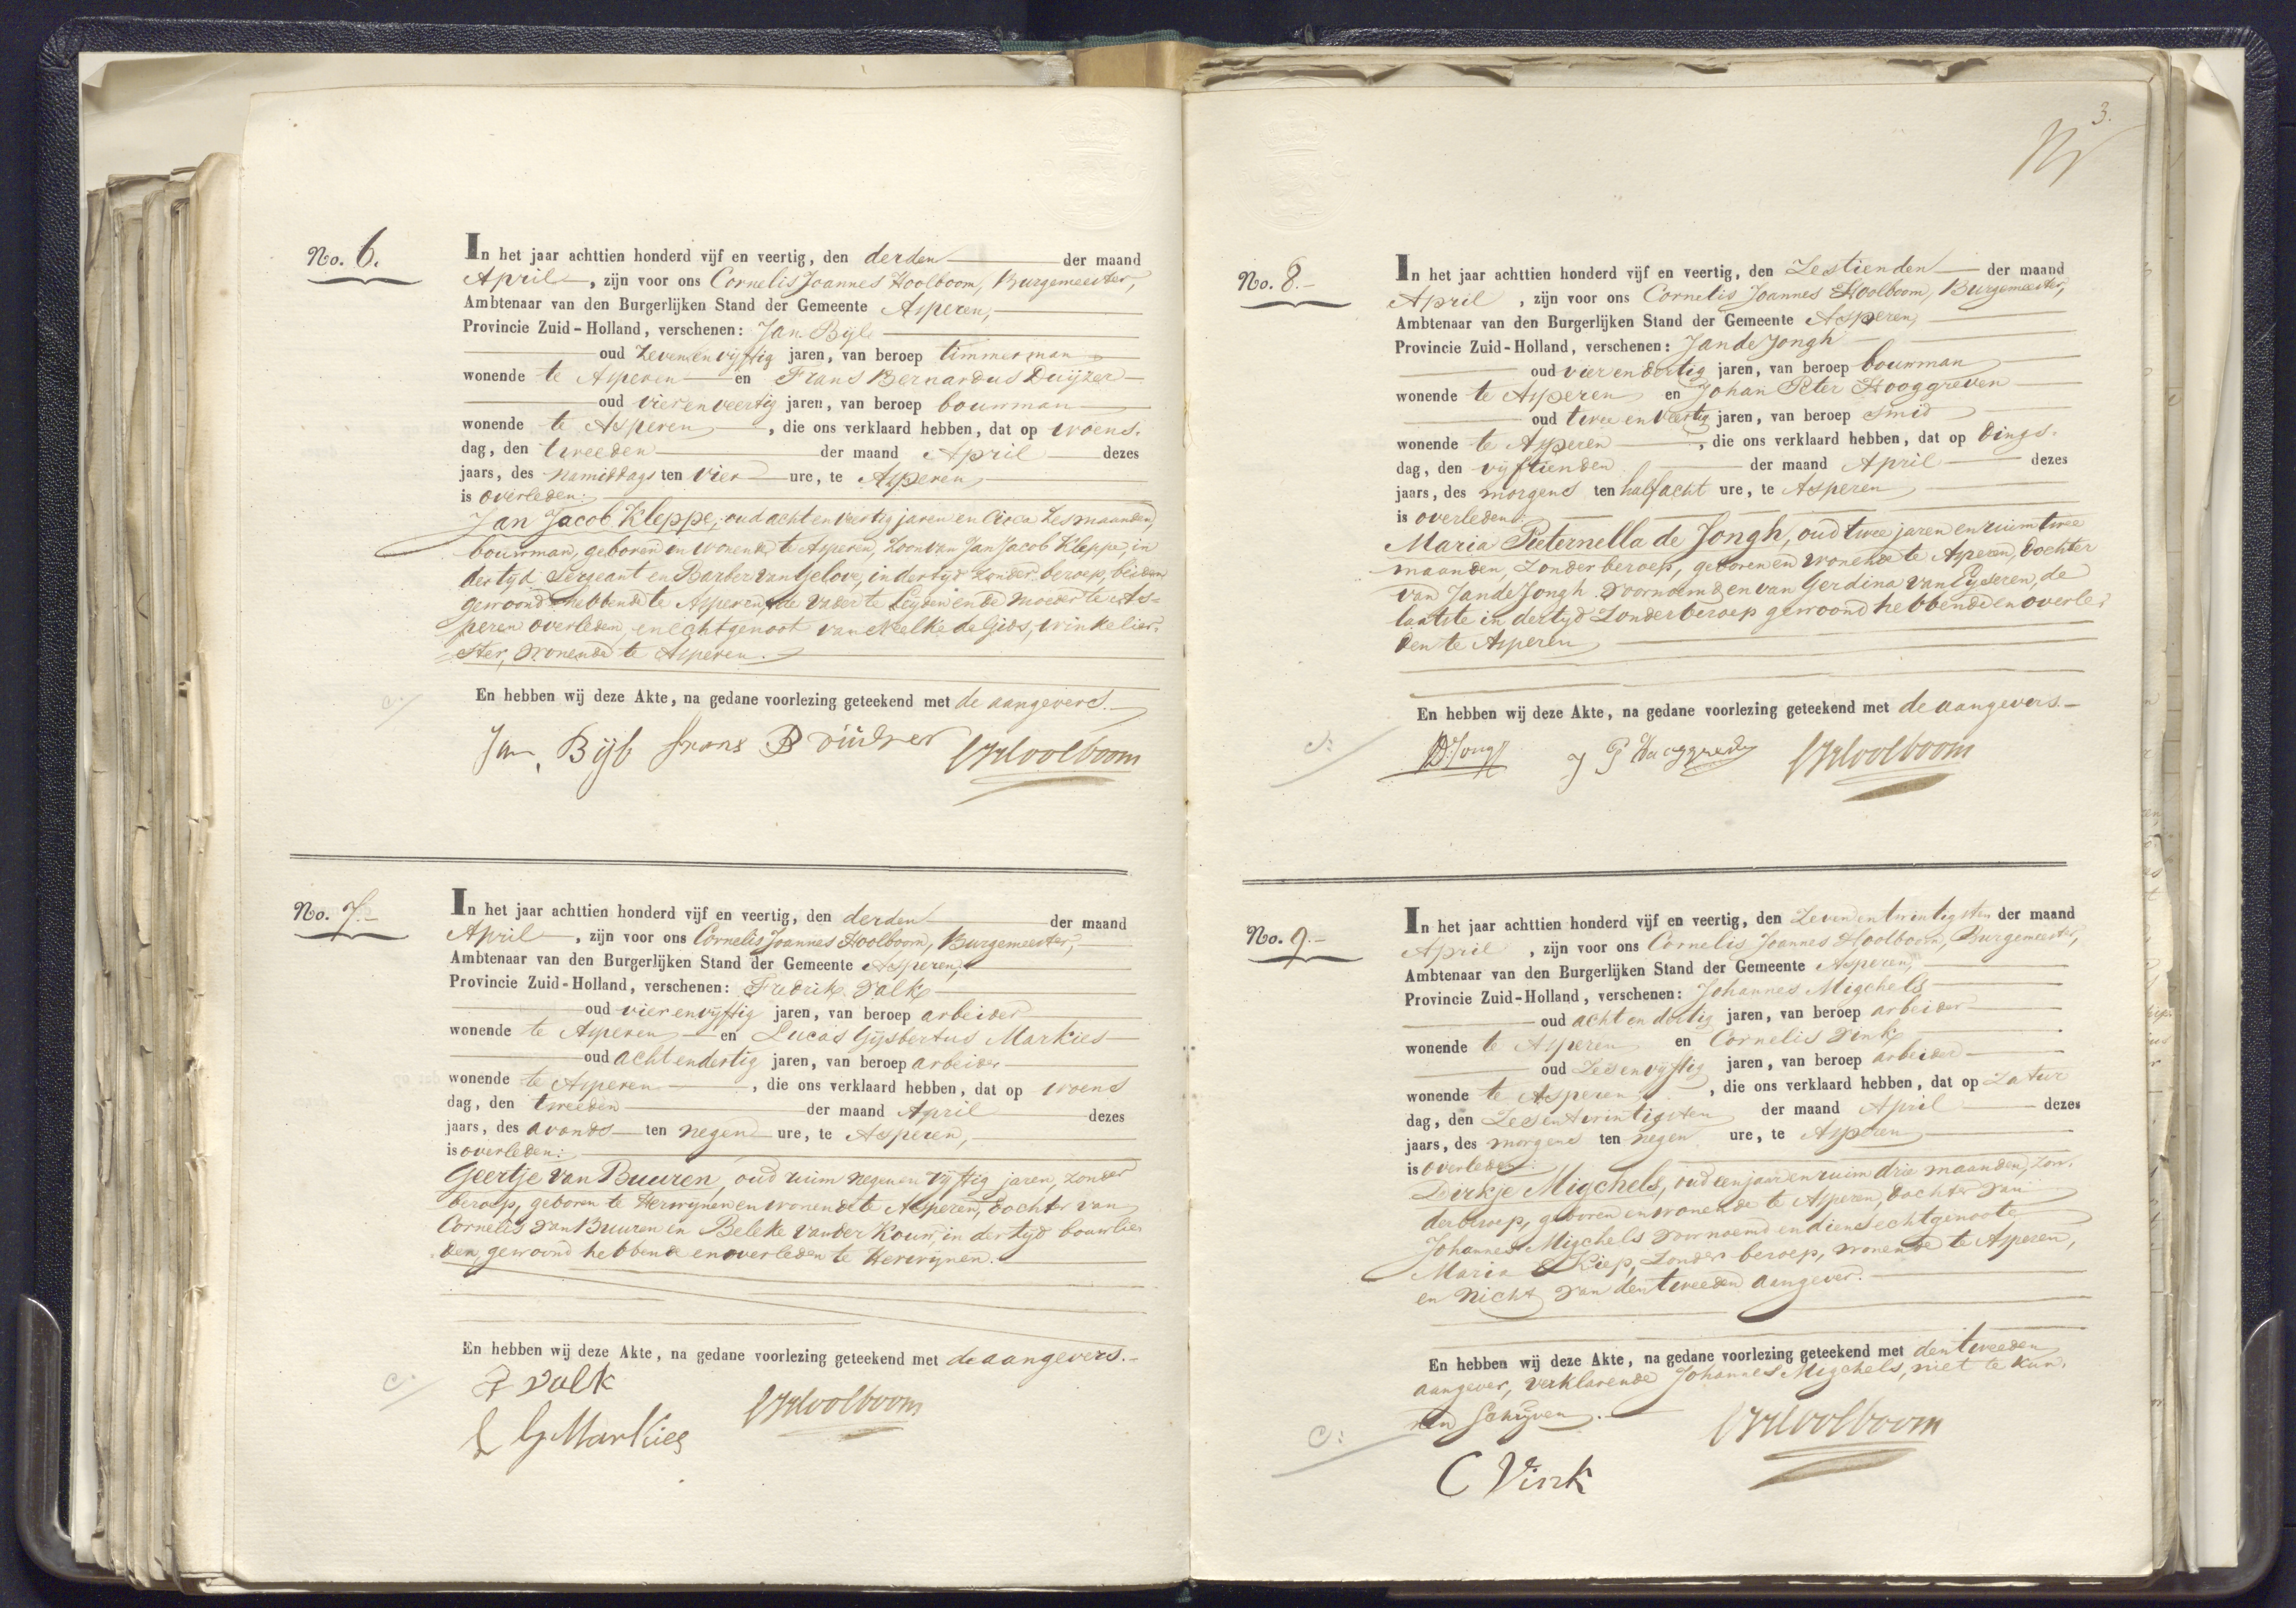 No. 6.
In het jaar achttien honderd vijf en veertig, den derden der maand
April, zijn voor ons Cornelis Joannes Hoolboom, Burgemeester,
Ambtenaar van den Burgerlijken Stand der Gemeente Asperen,
Provincie Zuid-Holland, verschenen: Jan Bijl
oud zevenenvijftig jaren, van beroep timmerman
wonende te Asperen en Frans Bernardus Duijzer
oud vierenveertig jaren, van beroep bouwman
wonende te Asperen, die ons verklaard hebben, dat op woens-
dag, den tweeden der maand April dezes
jaars, des namiddags ten vier ure, te Asperen
is overleden:
Jan Jacob Kleppe, oud acht en veertig jaren en circa zes maanden,
bouwman, geboren en wonende te Asperen, zoon van Jan Jacob Kleppe, in
dertijd Sergeant en Barber van Gelove, in dertijd zonder beroep, beiden
gewoond hebbende te Asperen, de vader te Leyden en de moeder te As-
peren overleden, en echtgenoot van Neelke de Gids, winkelier-
ster, wonende te Asperen.
En hebben wij deze Akte, na gedane voorlezing geteekend met de aangevers.
Jan Bijl frans B CJHoolboom
No. 7.
In het jaar achttien honderd vijf en veertig, den derden der maand
April, zijn voor ons Cornelis Joannes Hoolboom, Burgemeester,
Ambtenaar van den Burgerlijken Stand der Gemeente Asperen,
Provincie Zuid-Holland, verschenen: Fredrik Valk
oud vierenvijftig jaren, van beroep arbeider
wonende te Asperen en Lucas Gijsbertus Markies
oud achtendertig jaren, van beroep arbeider
wonende te Asperen, die ons verklaard hebben, dat op woens
dag, den tweeden der maand April dezes
jaars, des avonds ten negen ure, te Asperen,
is overleden:
Geertje van Buuren, oud ruim negenenvijftig jaren, zonder
beroep, geboren te Herwijnen en wonende te Asperen, dochter van
Cornelis van Buuren en Beleke van der Kouw, in dertijd bouwlie-
den, gewoond hebbende en overleden te Herwijnen.
En hebben wij deze Akte, na gedane voorlezing geteekend met de aangevers.
F Valk
CJHoolboom
L G Markies
3.
No. 8.
In het jaar achttien honderd vijf en veertig, den Zestienden der maand
April, zijn voor ons Cornelis Joannes Hoolboom, Burgemeester,
Ambtenaar van den Burgerlijken Stand der Gemeente Asperen,
Provincie Zuid-Holland, verschenen: Jan de Jongh
oud vierendertig jaren, van beroep bouwman
wonende te Asperen en Johan Peter Hooggreven
oud twee en veertig jaren, van beroep Smid
wonende te Asperen, die ons verklaard hebben, dat op dings-
dag, den vijftienden der maand April dezes
jaars, des morgens ten half acht ure, te Asperen
is overleden:
Maria Pieternella de Jongh, oud twee jaren en ruim twee
maanden, zonder beroep, geboren en wonende te Asperen, dochter
van Jan de Jongh voornoemd en van Gerdina van Eyseren, de
laatste in dertijd zonder beroep gewoond hebbende en overle-
den te Asperen
En hebben wij deze Akte, na gedane voorlezing geteekend met de aangevers.
JD Jongh J P CJHoolboom
No. 9.
In het jaar achttien honderd vijf en veertig, den Zevenentwintigsten der maand
April, zijn voor ons Cornelis Joannes Hoolboom, Burgemeester,
Ambtenaar van den Burgerlijken Stand der Gemeente Asperen,
Provincie Zuid-Holland, verschenen: Johannes Migchels
oud acht en dertig jaren, van beroep arbeider
wonende te Asperen en Cornelis Vink
oud zesenvijftig jaren, van beroep arbeider
wonende te Asperen, die ons verklaard hebben, dat op Zatur
dag, den Zesentwintigsten der maand April dezes
jaars, des morgens ten negen ure, te Asperen
is overleden:
Dirkje Migchels, oud een jaar en ruim drie maanden, zon-
der beroep, geboren en wonende te Asperen, dochter van
Johannes Migchels voornoemd en diens echtgenoote
Maria Kiep, zonder beroep, wonende te Asperen,
en nicht van den tweeden aangever.
En hebben wij deze Akte, na gedane voorlezing geteekend met den tweeden
aangever, verklarende Johannes Migchels, niet te kun-
nen schrijven.
CJHoolboom
C Vink